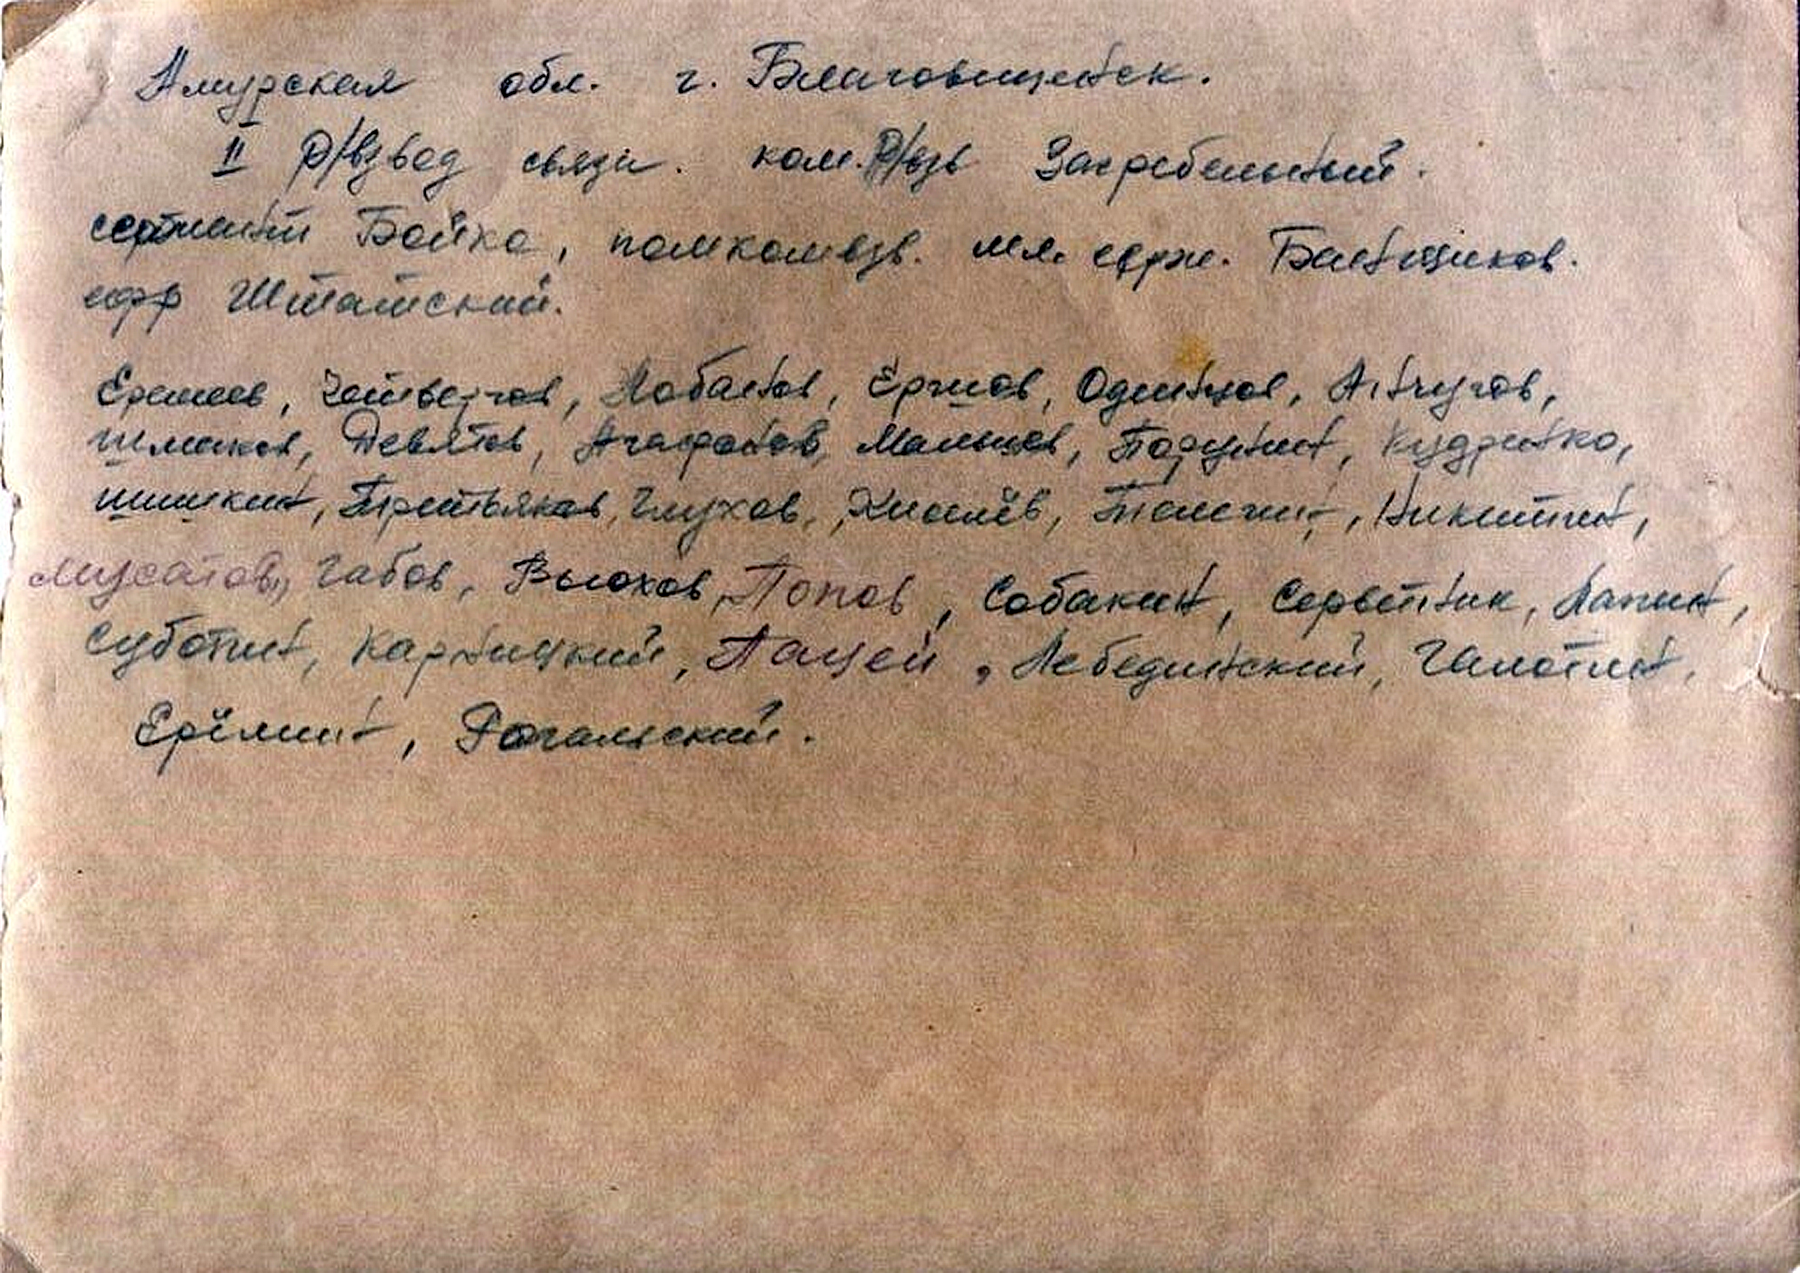 Амурская обл. г. Благовещенск.
II р/взвод связи. ком. р/взв Загребельный.
сержант Бойко, помкомвзв. мл. серж. Банщиков.
ефр Штатский.
Еремеев, Четвергов, Лобанов, Ершов, Одинцов, Анчугов,
Шмаков, Девятов, Агафонов, Мальцев, Порунин, Кудринко,
Шишкин, Третьяков, Глухов, Киселёв, Телегин, Никитин,
Мусатов, Габов, Вьюхов, Попов, Собакин, Серветник, Лапин,
Суботин, Карницкий, Пацей, Лебединский, Галотин,
Ерёмин, Рогальский.